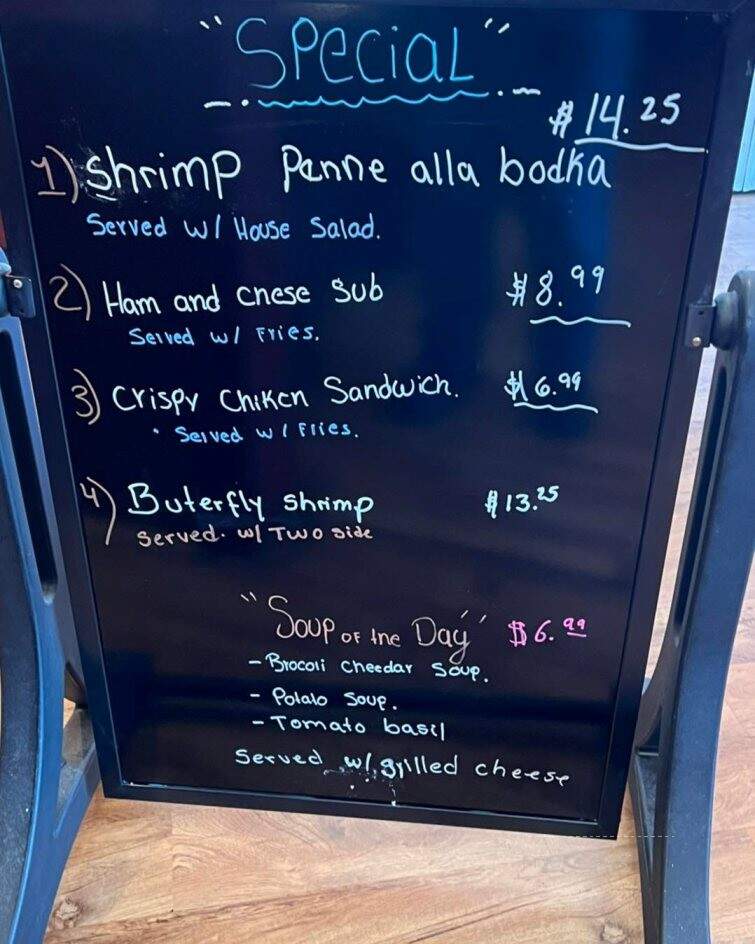 "SPECIAL"
$14.25
1) Shrimp Penne alla bodka
Served w/ House Salad.
2) Ham and Chese Sub $8.99
Served w/ Fries.
3) Crispy Chiken Sandwich. $6.99
• Served w/ Fries.
4) Buterfly Shrimp $13.25
Served. w/ Two side
"Soup of the Day" $6.99
- Brocoli Cheedar Soup.
- Potato Soup.
- Tomato basil
Served w/ grilled cheese